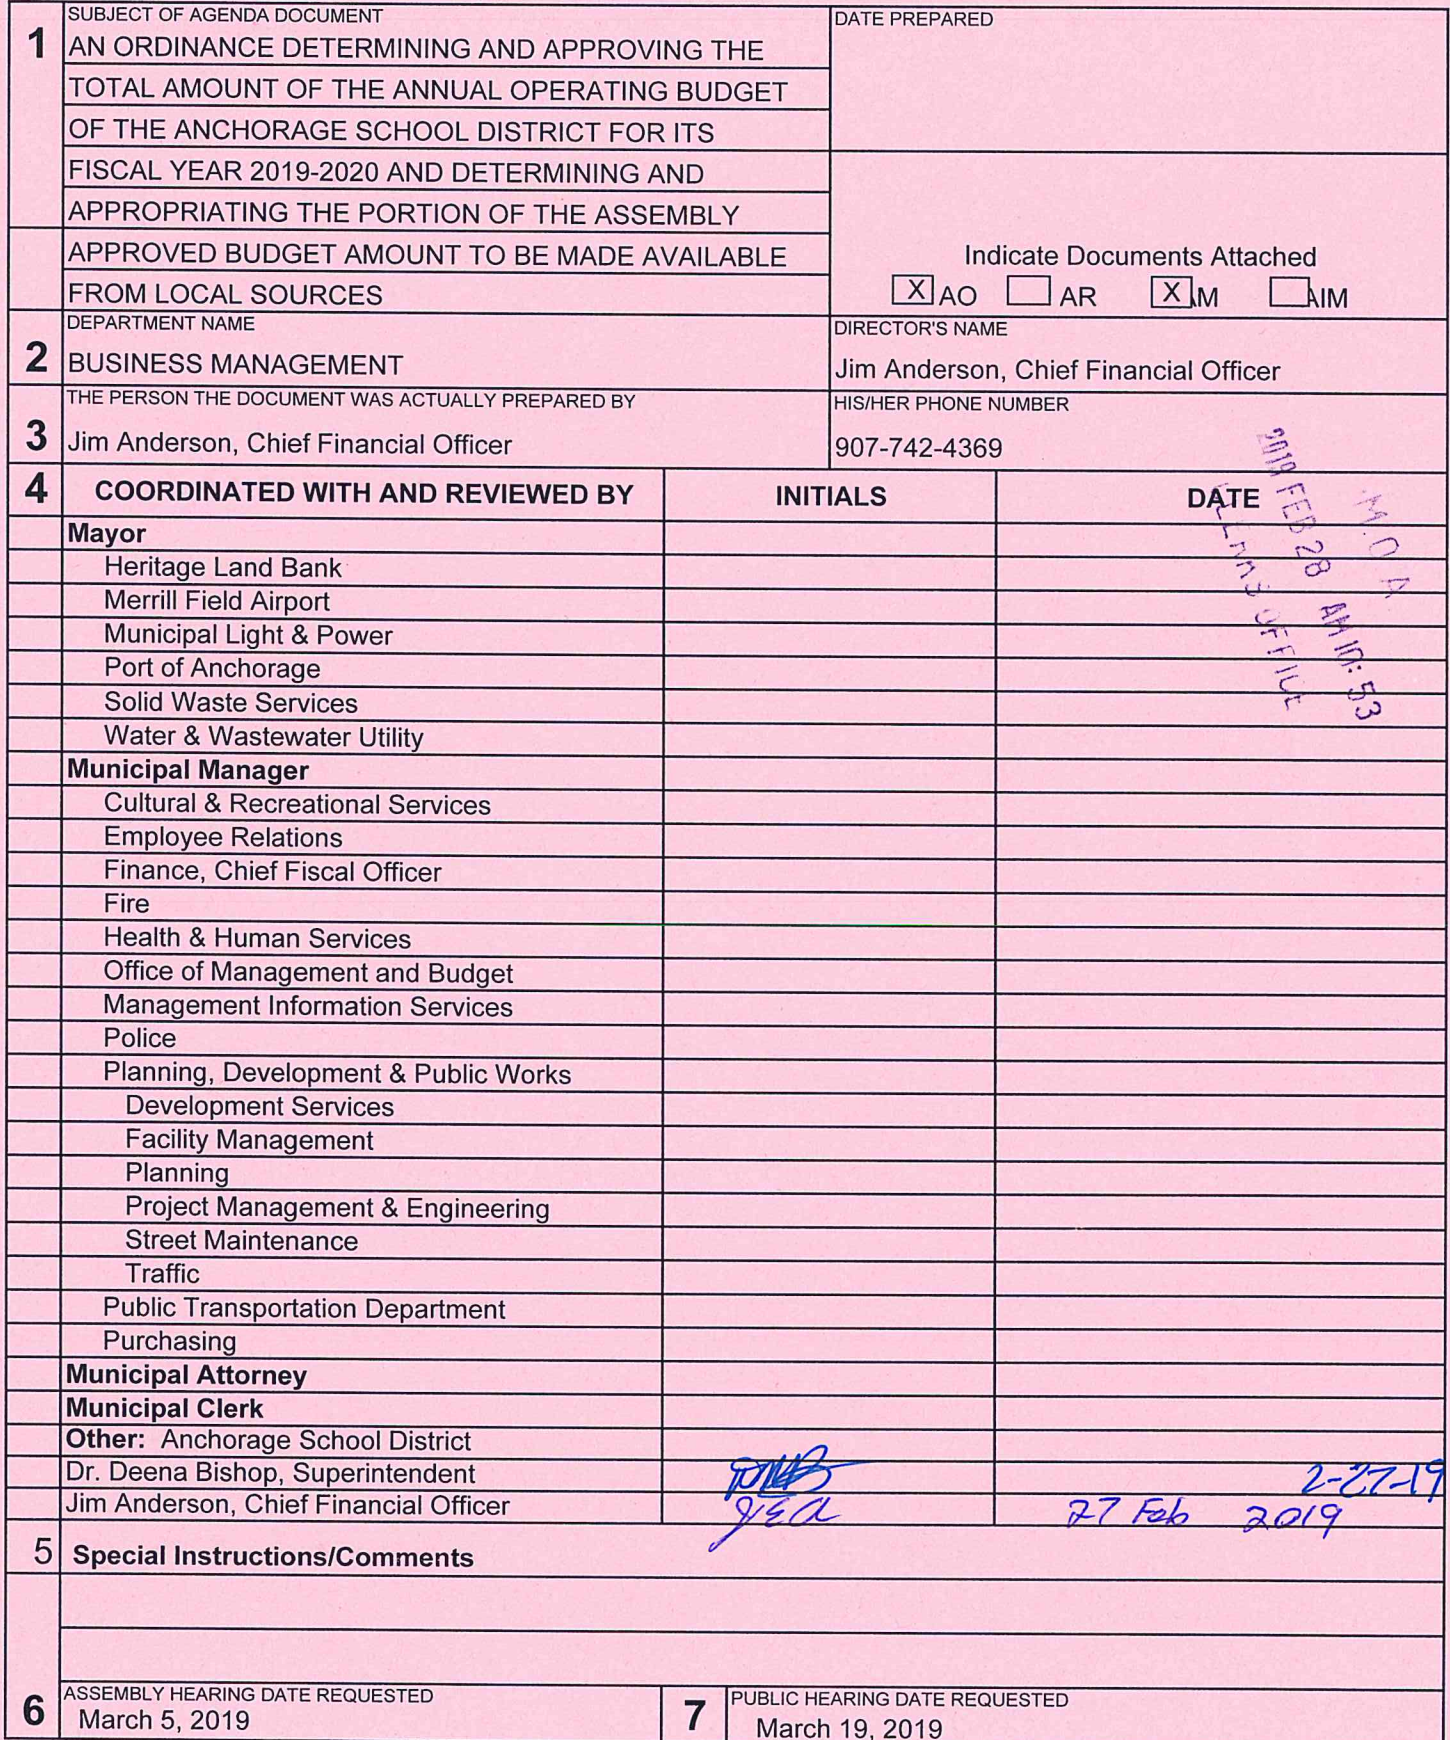 1
SUBJECT OF AGENDA DOCUMENT
AN ORDINANCE DETERMINING AND APPROVING THE
TOTAL AMOUNT OF THE ANNUAL OPERATING BUDGET
OF THE ANCHORAGE SCHOOL DISTRICT FOR ITS
FISCAL YEAR 2019-2020 AND DETERMINING AND
APPROPRIATING THE PORTION OF THE ASSEMBLY
APPROVED BUDGET AMOUNT TO BE MADE AVAILABLE
FROM LOCAL SOURCES
DATE PREPARED
Indicate Documents Attached
X AO AR X M AIM
2
DEPARTMENT NAME
BUSINESS MANAGEMENT
DIRECTOR'S NAME
Jim Anderson, Chief Financial Officer
3
THE PERSON THE DOCUMENT WAS ACTUALLY PREPARED BY
Jim Anderson, Chief Financial Officer
HIS/HER PHONE NUMBER
907-742-4369
4 COORDINATED WITH AND REVIEWED BY INITIALS DATE
M.O.A
2019 FEB 28 AM 10:53
OFFICE
Mayor
Heritage Land Bank
Merrill Field Airport
Municipal Light & Power
Port of Anchorage
Solid Waste Services
Water & Wastewater Utility
Municipal Manager
Cultural & Recreational Services
Employee Relations
Finance, Chief Fiscal Officer
Fire
Health & Human Services
Office of Management and Budget
Management Information Services
Police
Planning, Development & Public Works
Development Services
Facility Management
Planning
Project Management & Engineering
Street Maintenance
Traffic
Public Transportation Department
Purchasing
Municipal Attorney
Municipal Clerk
Other: Anchorage School District
Dr. Deena Bishop, Superintendent 2-27-19
Jim Anderson, Chief Financial Officer JEA 27 Feb 2019
5 Special Instructions/Comments
6
ASSEMBLY HEARING DATE REQUESTED
March 5, 2019
7
PUBLIC HEARING DATE REQUESTED
March 19, 2019